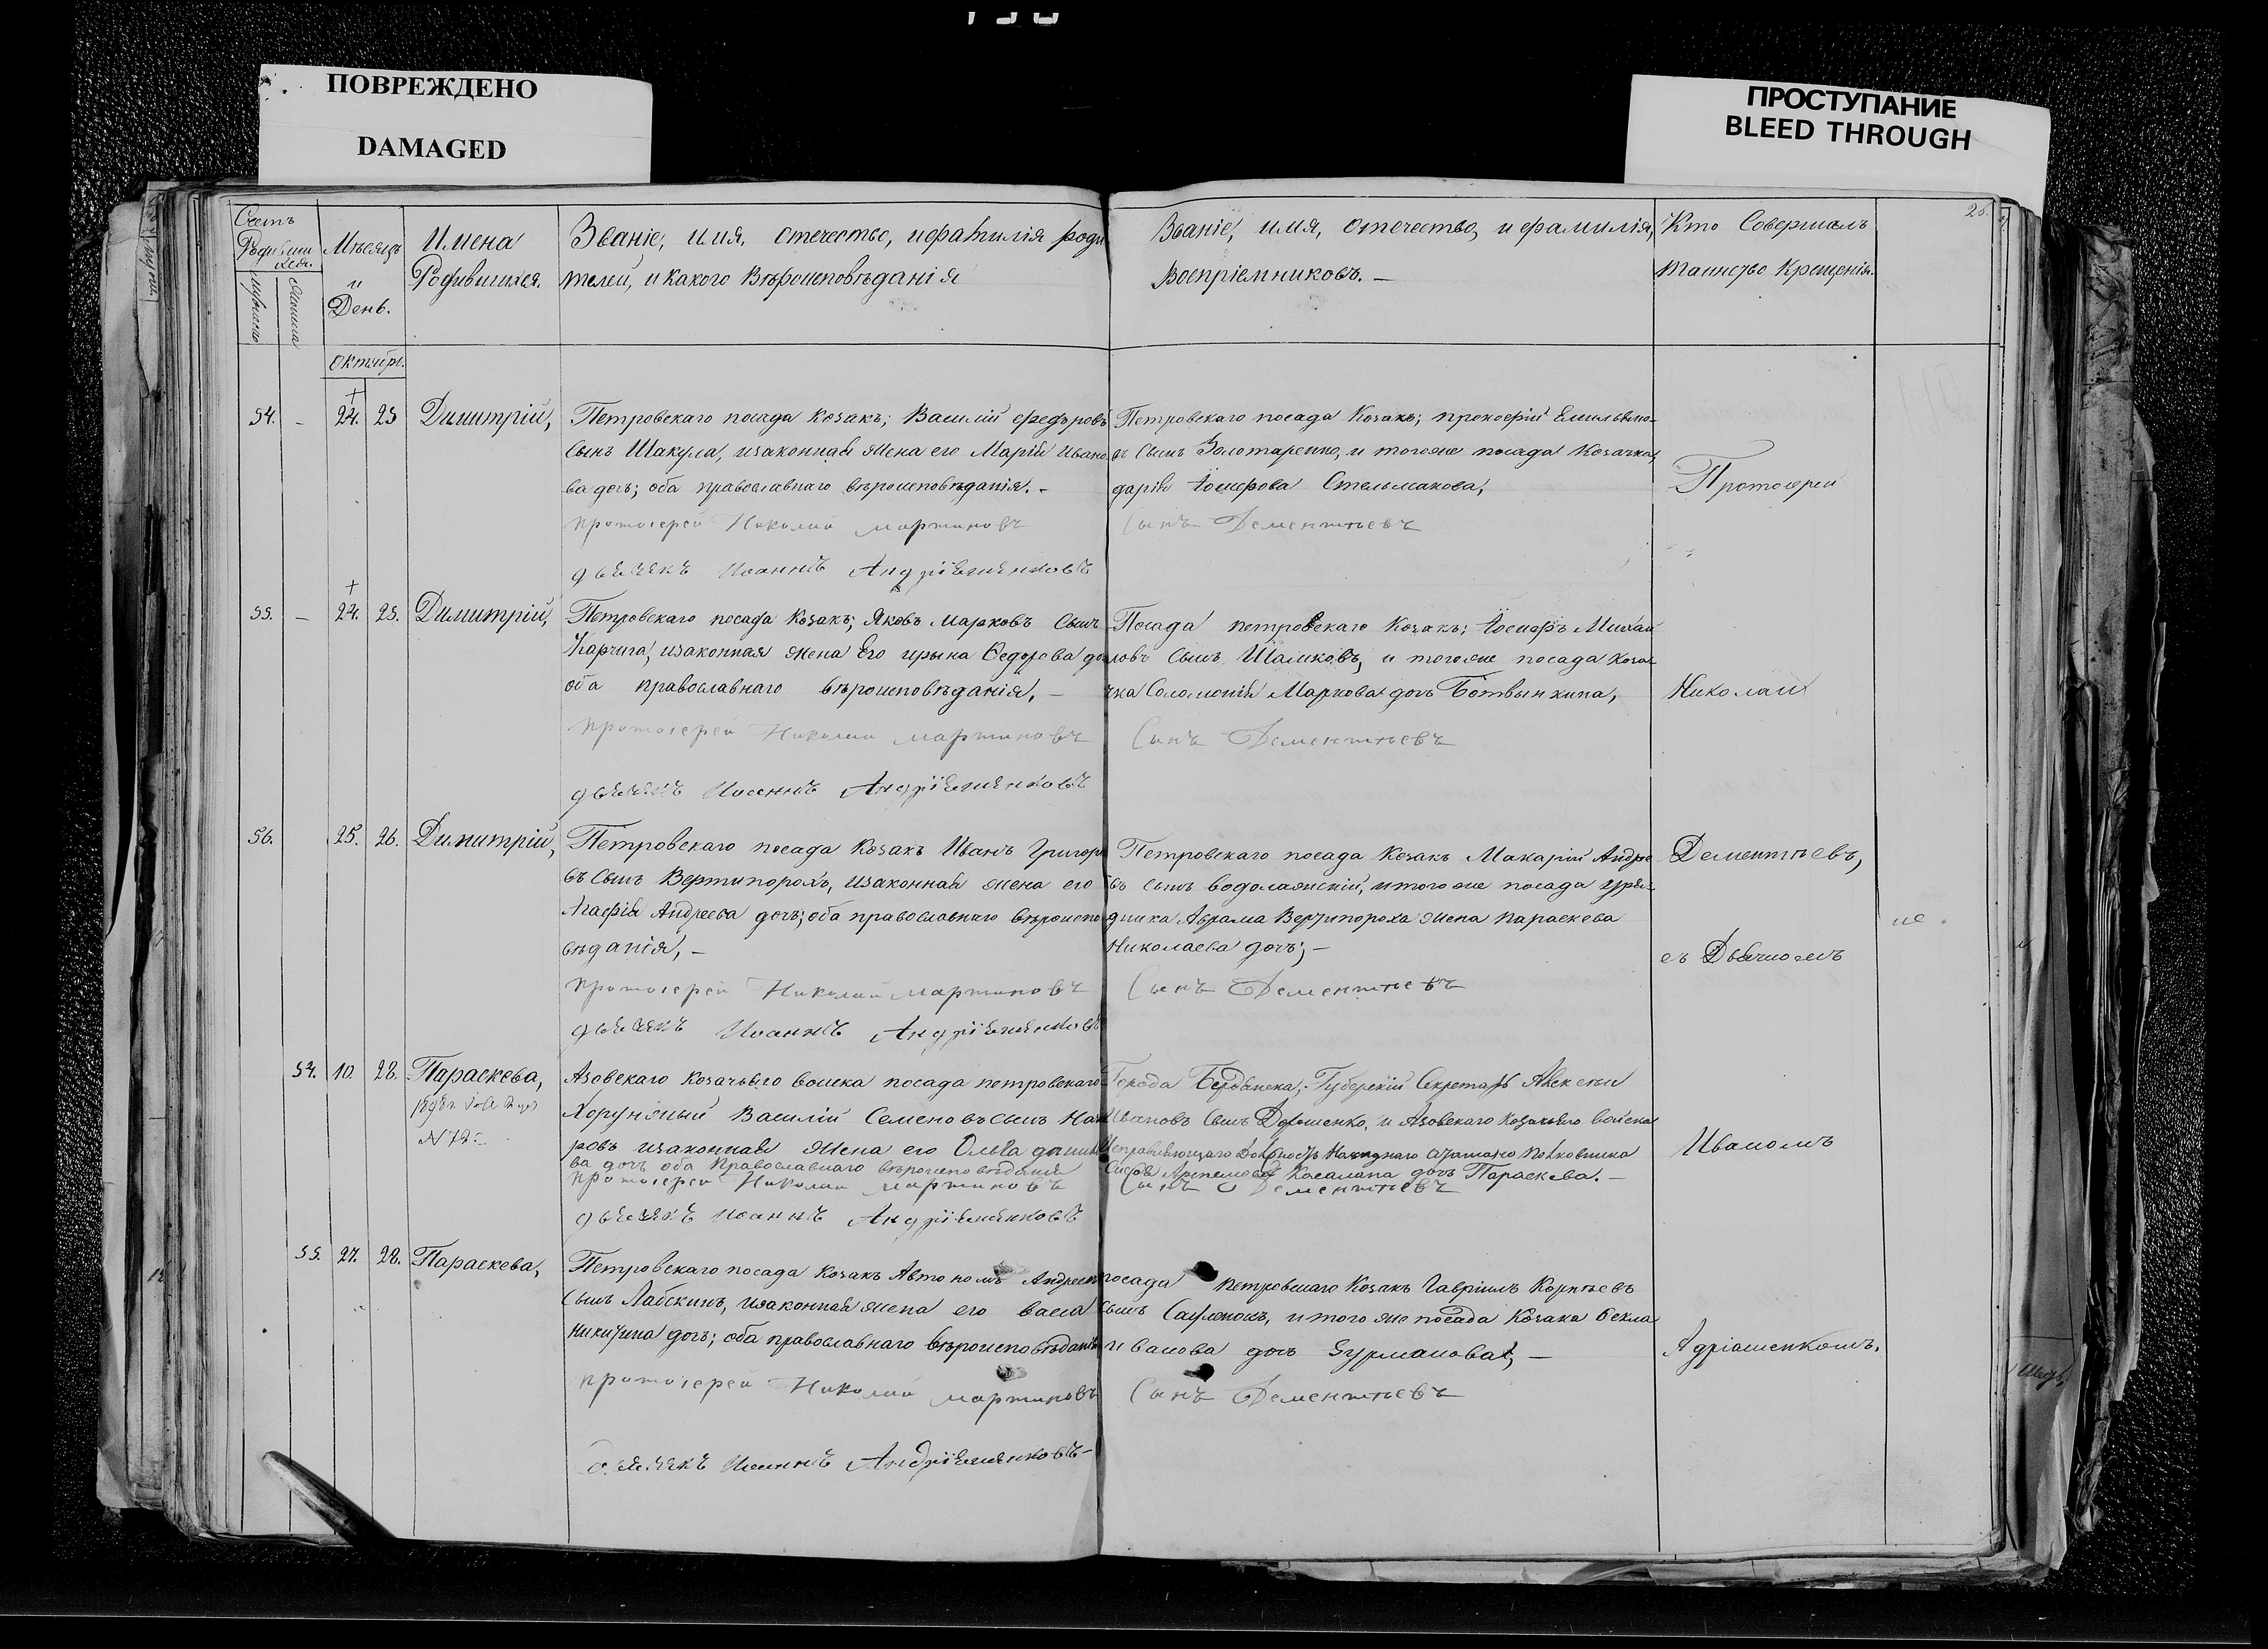 ПОВРЕЖДЕНО
DAMAGED
ПРОСТУПАНИЕ
BLEED THROUGH
26.
Счетъ
Мѣсяцъ
и
День.
Имена
Родившихся.
Званіе, имя, отечество, и фамилія роди
телей, и какого Вѣроисповѣданія
Званіе, имя, отечество, и фамилія,
Воспріемниковъ. —
Кто Совершалъ
таинство Крещенія.
Октябрь.
54. - 24. 25 Димитрій,
Петровскаго посада Козакъ; Василій Федоровъ
Сынъ Шакула, изаконная жена его Марія Ивано
ва дочь; оба православнаго вѣроисповѣданія. -
протоіерей Николай мартиновъ
дьячекъ Иоаннъ
Петровскаго посада Козакъ; прокофій Емельяно-
въ Сынъ Золотаренко, и тогоже посада Козачка,
дарія Іосифова Стельмахова,
Сынъ Дементьевъ
Протоіерей
55. - 24. 25. Димитрій,
Петровскаго посада Козакъ; Яковъ Марковъ Сынъ
Карчига, изаконная жена Его ирына Федорова до
оба православнаго вѣроисповѣданія, -
протоіерей Николай мартиновъ
дьячекъ Иоаннъ
Посада петровскаго Козакъ; Іосифъ Михаи
ловъ Сынъ Шамковъ, и тогоже посада коза
чка Соломонія Маркова дочь Ботвынкина,
Сынъ Дементьевъ
Николай
56. 25. 26. Димитрій,
Петровскаго посада Козакъ Иванъ Григорь
въ Сынъ Вертипорохъ, изаконная жена его
Агафія Андреева дочь; оба православнаго вѣроиспо
вѣданія, -
протоіерей Николай мартиновъ
дьячекъ Иоаннъ
Петровскаго посада Козакъ Макарій Андре
въ сынъ водолажскій, итогоже посада уря-
дника Аврама Вертипороха жена параскева
Николаева дочь; -
Сынъ Дементьевъ
Дементьевъ,
съ Дьячкомъ
54. 10. 28. Параскева,
Азовскаго Козачьяго воиска посада петровскаго
Хорунжый Василій Семеновъ сынъ
ровъ изаконная жена его Ольга
ва дочь оба Православнаго вѣроисповѣданія
протоіерей Николай мартиновъ
дьячекъ Иоаннъ
Города Бердянска, Губерскій Секретарь
Ивановъ Сынъ Дорошенко, и Азовскаго Козачьяго воиска
Наказнаго Атамана Полковника
дочь Параскева. -
Сынъ Дементьевъ
Иваномъ
55. 27. 28. Параскева,
Петровскаго посада Козакъ Автономъ Андреевъ
Сынъ Лабскинъ, изаконная жена его васса
Никитина дочь; оба православнаго вѣроисповѣданія
протоіерей Николай мартиновъ
дьячекъ Иоаннъ
посада петровскаго Козакъ Гавріилъ Корнѣевъ
Сынъ итогоже посада Козака Фекла
иванова дочь Бурманова, -
Сынъ Дементьевъ
Адріашенкомъ.